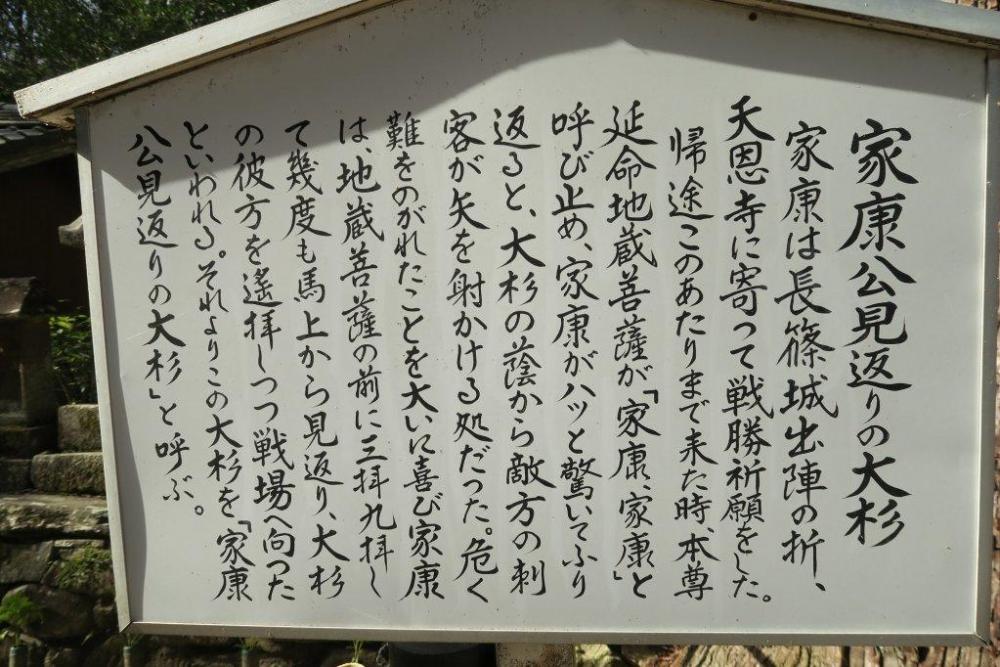 家康公見返りの大杉
家康は長篠城出陣の折、
天恩寺に寄つて戦勝祈願をした。
帰途このあたりまで来た時、本尊
延命地蔵菩薩が「家康、家康」と
呼び止め、家康がハッと驚いてふり
返ると、大杉の蔭から敵方の刺
客が矢を射かける処だった。危く
難をのがれたことを大いに喜び家康
は、地蔵菩薩の前に三拝九拝し
て幾度も馬上から見返り、大杉
の彼方を遙拝しつつ戦場へ向つた
といわれる。それよりこの大杉を「家康
公見返りの大杉」と呼ぶ。